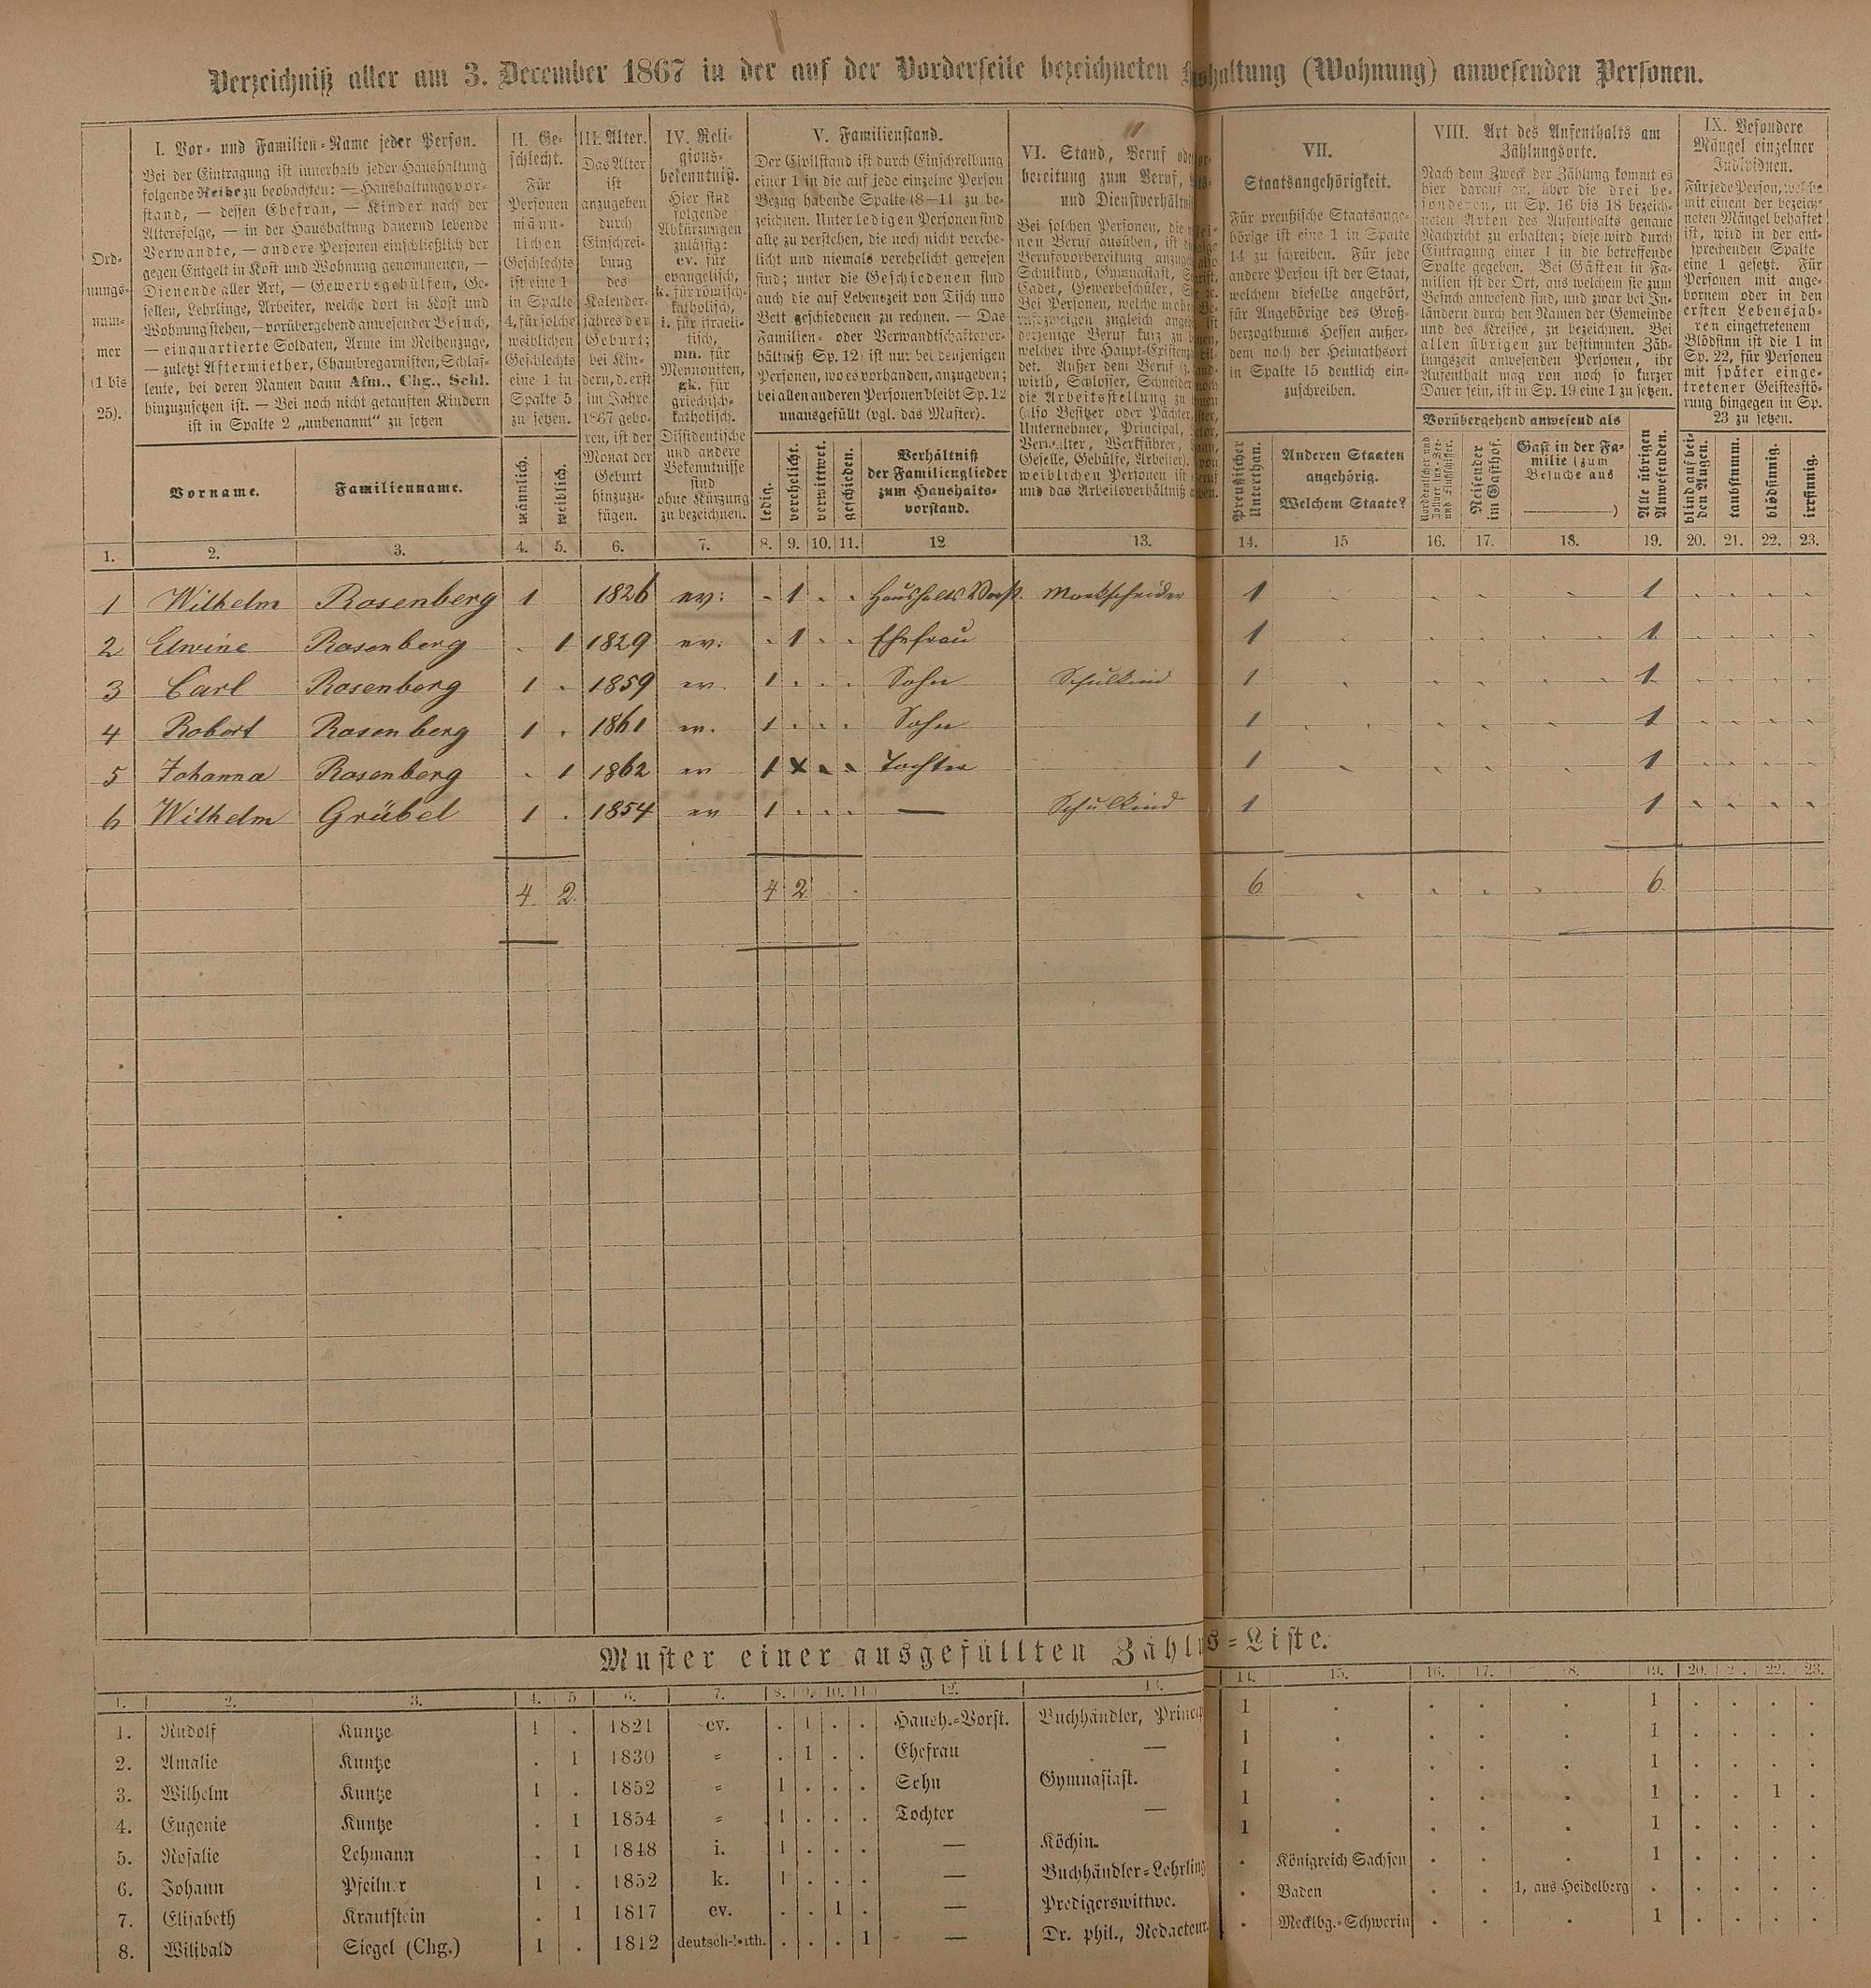 Verzeichniß aller am 3. December 1867 in der auf der Vorderseite bezeichneten haltung (Wohnung) anwesenden Personen.
Ord-
nungs-
num-
mer
(1 bis
25).
I. Vor- und Familien-Name jeder Person.
Bei der Eintragung ist innerhalb jeder Haushaltung
folgende Reihe zu beobachten: — Haushaltungsvor-
stand, — dessen Ehefrau, — Kinder nach der
Altersfolge, — in der Haushaltung dauernd lebende
Verwandte, — andere Personen einschließlich der
gegen Entgelt in Kost und Wohnung genommenen, —
Dienende aller Art, — Gewerbsgehülfen, Ge-
sellen, Lehrlinge, Arbeiter, welche dort in Kost und
Wohnung stehen, — vorübergehend anwesender Besuch,
— einquartierte Soldaten, Arme im Reihenzuge,
— zuletzt Aftermiether, Chambregarnisten, Schlaf-
leute, bei deren Namen dann Afm., Chg., Schl.
hinzuzusetzen ist. — Bei noch nicht getauften Kindern
ist in Spalte 2 „unbenannt“ zu setzen
Vorname.
Familienname.
II. Ge-
schlecht.
Für
Personen
männ-
lichen
Geschlechts
ist eine 1
in Spalte
4, für solche
weiblichen
Geschlechts
eine 1 in
Spalte 5
zu setzen.
männlich.
weiblich.
III. Alter.
Das Alter
ist
anzugeben
durch
Einschrei-
bung
des
Kalender-
jahres der
Geburt;
bei Kin-
dern, d. erst
im Jahre
1867 gebo-
ren, ist der
Monat der
Geburt
hinzuzu-
fügen.
IV. Reli-
gions-
bekenntniß.
Hier sind
folgende
Abkürzungen
zulässig:
ev. für
evangelisch,
k. für römisch-
katholisch,
i. für israeli-
tisch,
mn. für
Mennoniten,
gk. für
griechisch-
katholisch.
Dissidentische
und andere
Bekenntnisse
sind
ohne Kürzung
zu bezeichnen.
V. Familienstand.
Der Civilstand ist durch Einschreibung
einer 1 in die auf jede einzelne Person
Bezug habende Spalte (8—11 zu be-
zeichnen. Unter ledigen Personen sind
alle zu verstehen, die noch nicht verehe-
licht und niemals verehelicht gewesen
sind; unter die Geschiedenen sind
auch die auf Lebenszeit von Tisch und
Bett geschiedenen zu rechnen. — Das
Familien- oder Verwandtschaftsver-
hältniß Sp. 12) ist nur bei denjenigen
Personen, wo es vorhanden, anzugeben;
bei allen anderen Personen bleibt Sp. 12
unausgefüllt (vgl. das Muster).
ledig.
verehelicht.
verwittwet.
geschieden.
Verhältniß
der Familienglieder
zum Haushalts-
vorstand.
VI. Stand, Beruf
bereitung zum Beruf,
und Dienstverhältn
Bei solchen Personen, die
nen Beruf ausüben, ist
Berufsvorbereitung
Schulkind, Gymnasiast,
Cadet, Gewerbeschüler,
Bei Personen, welche
rufszweigen zugleich
derjenige Beruf kurz zu
welcher ihre Haupt-Existenz
det. Außer dem Beruf
wirth, Schlosser, Schneider
die Arbeitsstellung zu
(also Besitzer oder Pächter,
Unternehmer, Principal,
Verwalter, Werkführer,
Geselle, Gehülfe, Arbeiter).
weiblichen Personen ist
und das Arbeitsverhältniß
VII.
Staatsangehörigkeit.
Für preußische Staatsange-
hörige ist eine 1 in Spalte
14 zu schreiben. Für jede
andere Person ist der Staat,
welchem dieselbe angehört,
für Angehörige des Groß-
herzogthums Hessen außer-
dem noch der Heimathsort
in Spalte 15 deutlich ein-
zuschreiben.
Preußischer
Unterthan.
Anderen Staaten
angehörig.
Welchem Staate?
VIII. Art des Aufenthalts am
Zählungsorte.
Nach dem Zweck der Zählung kommt es
hier darauf an, über die drei be-
sonderen, in Sp. 16 bis 18 bezeich-
neten Arten des Aufenthalts genaue
Nachricht zu erhalten; diese wird durch
Eintragung einer 1 in die betreffende
Spalte gegeben. Bei Gästen in Fa-
milien ist der Ort, aus welchem sie zum
Besuch anwesend sind, und zwar bei In-
ländern durch den Namen der Gemeinde
und des Kreises, zu bezeichnen. Bei
allen übrigen zur bestimmten Zäh-
lungszeit anwesenden Personen, ihr
Aufenthalt mag von noch so kurzer
Dauer sein, ist in Sp. 19 eine 1 zu setzen.
Vorübergehend anwesend als
Reisender
im Gasthof.
Gast in der Fa-
milie (zum
Besuche aus
)
Alle übrigen
Anwesenden.
IX. Besondere
Mängel einzelner
Individuen.
Für jede Person, welche
mit einem der bezeich-
neten Mängel behaftet
ist, wird in der ent-
sprechenden Spalte
eine 1 gesetzt. Für
Personen mit ange-
bornem oder in den
ersten Lebensjah-
ren eingetretenem
Blödsinn ist die 1 in
Sp. 22, für Personen
mit später einge-
tretener Geistesstö-
rung hingegen in Sp.
23 zu setzen.
blind auf bei-
den Augen.
taubstumm.
blödsinnig.
irrsinnig.
1. 2. 3. 4. 5. 6. 7. 8. 9. 10. 11. 12 13. 14. 15 16. 17. 18. 19. 20. 21. 22. 23.
1 Wilhelm Rosenberg 1 1826 ev: - 1 . . Haushalts Vorst. Markscheider 1 1
2 Elwine Rosenberg . 1 1829 ev. . 1 . . Ehefrau 1 1
3 Carl Rosenberg 1 . 1859 ev. 1 . . . Sohn Schulkind 1 1
4 Robert Rosenberg 1 . 1861 ev. 1 . . . Sohn 1 1
5 Johanna Rosenberg . 1 1862 ev 1 x . . Tochter 1 1
6 Wilhelm Grübel 1 . 1854 ev 1 . . . — Schulkind 1 1
4. 2. 4 2 6 6
Muster einer ausgefüllten Zähl s-Liste.
1. 2. 3. 4. 5 6. 7. 8. 9. 10. 11 12. 13. 14. 15. 16. 17. 18. 19. 20. 2. 22. 23.
1. Rudolf Kuntze 1 . 1821 ev. . 1 . . Haush.-Vorst. Buchhändler, Princip 1 . . . . 1 . . . .
2. Amalie Kuntze . 1 1830 „ . 1 . . Ehefrau — 1 . . . . 1 . . . .
3. Wilhelm Kuntze 1 . 1852 „ 1 . . . Sohn Gymnasiast. 1 . . . . 1 . . . .
4. Eugenie Kuntze . 1 1854 „ 1 . . . Tochter — 1 . . . . 1 . . 1 .
5. Rosalie Lehmann . 1 1848 i. 1 . . . — Köchin. 1 . . . . 1 . . . .
6. Johann Pfeilner 1 . 1852 k. 1 . . . — Buchhändler-Lehrling . Königreich Sachsen . . . 1 . . . .
7. Elisabeth Krautstein . 1 1817 ev. . . 1 . — Predigerswittwe. . Baden . . 1, aus Heidelberg . . . . .
8. Wilibald Siegel (Chg.) 1 . 1812 deutsch-kath. . . . 1 — Dr. phil., Redacteur. . Mecklbg.-Schwerin . . . 1 . . . .